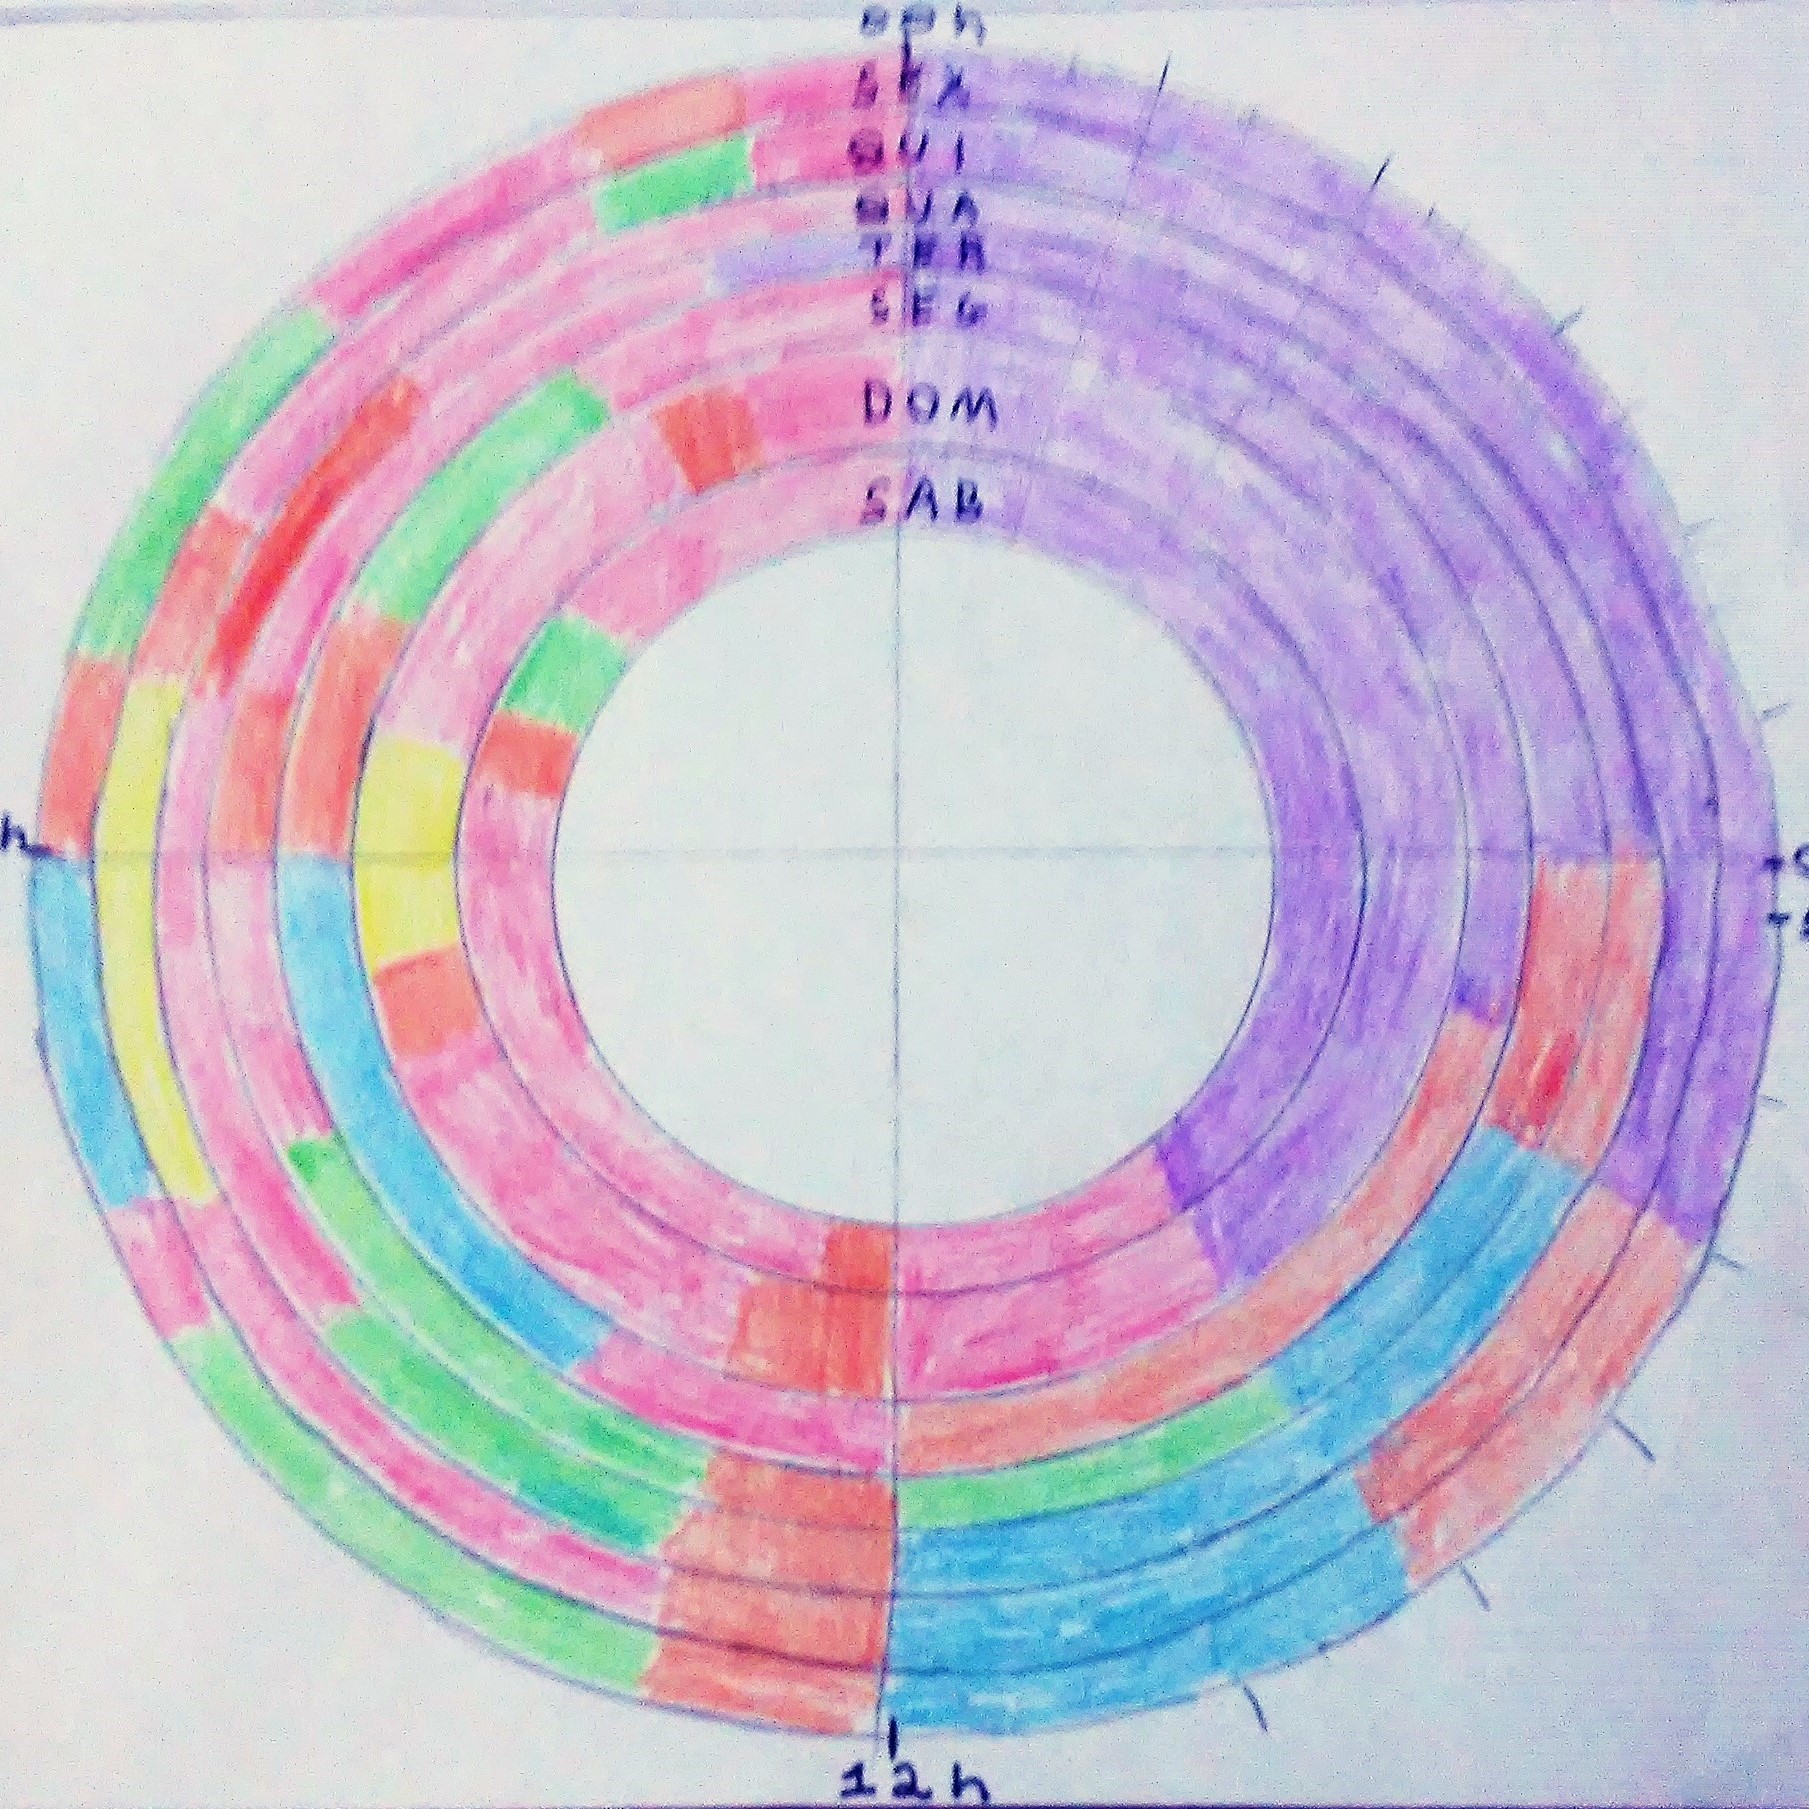 00h
SEX
QUI
QUA
TER
SEG
DOM
SAB
h
12h